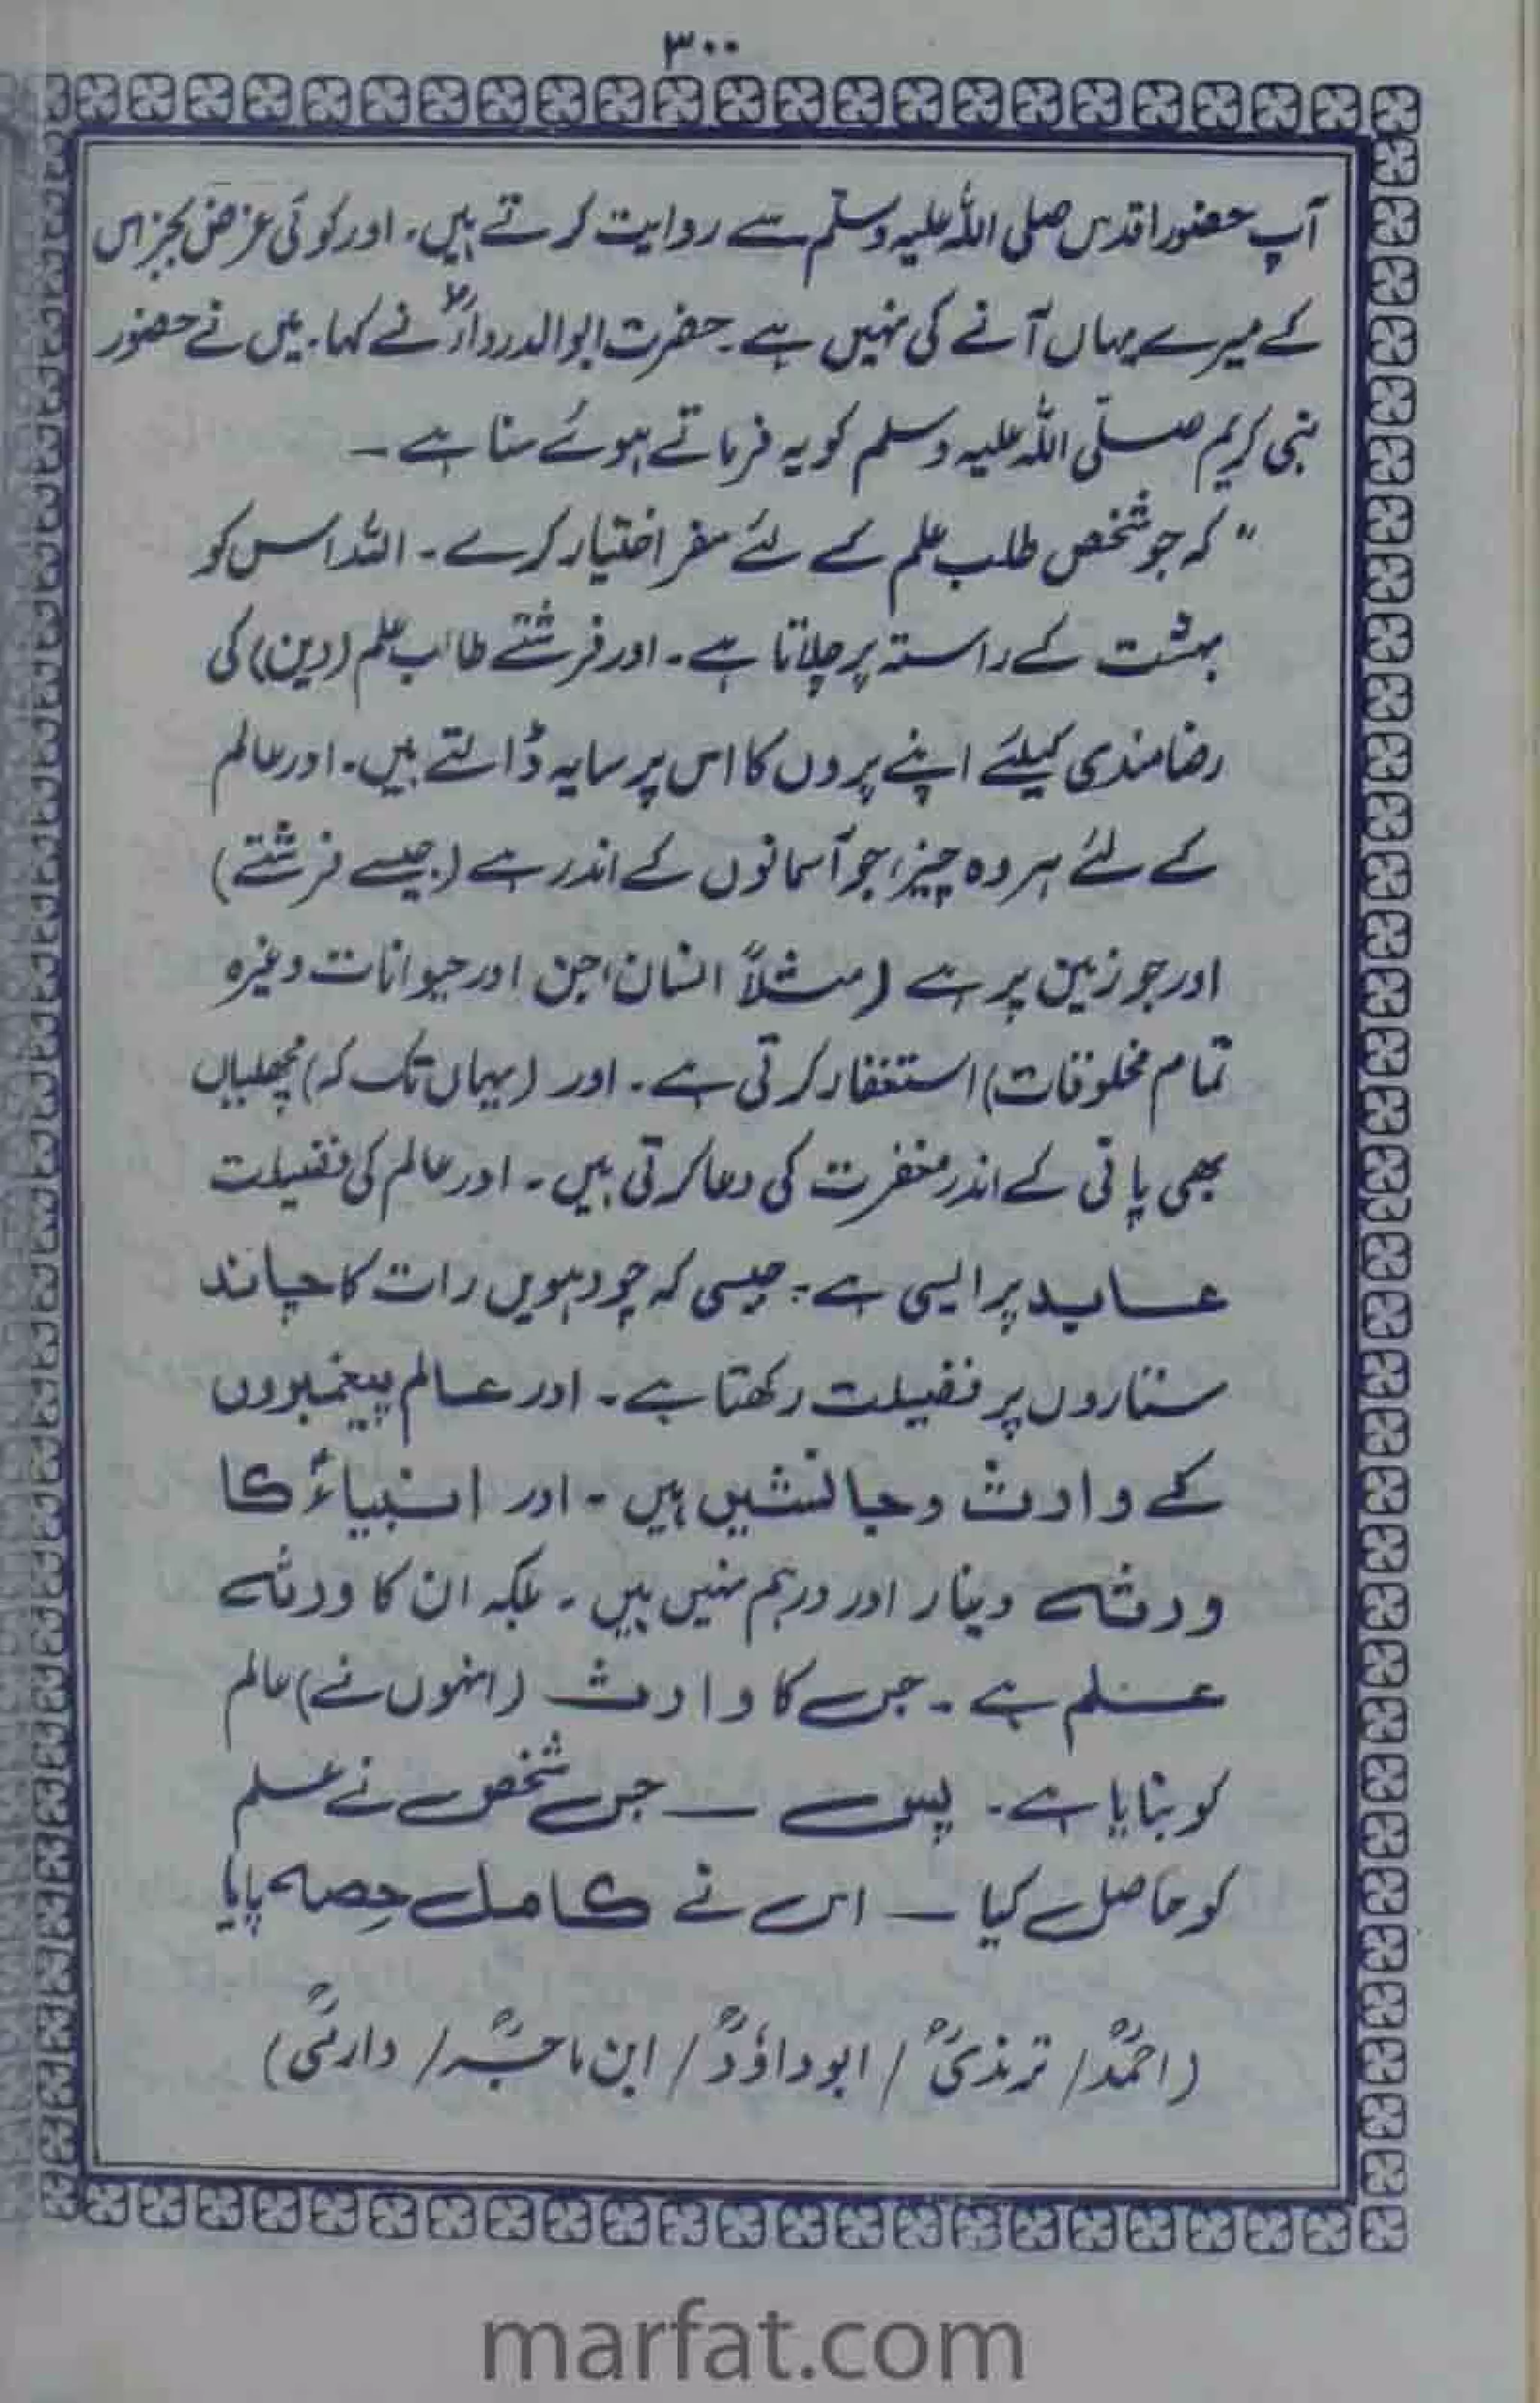 ۳۰۰
آپ حضور اقدس صلی اللہ علیہ وسلم سے روایت کرتے ہیں۔ اور کوئی غرض بجز اس
کے میرے یہاں آنے کی نہیں ہے۔ حضرت ابوالدرداءؓ نے کہا۔ میں نے حضور
نبی کریم صلّی اللہ علیہ وسلم کو یہ فرماتے ہوئے سنا ہے۔
"کہ جو شخص طلب علم کے لئے سفر اختیار کرے۔ اللہ اس کو
بہشت کے راستہ پر چلاتا ہے۔ اور فرشتے طالب علم (دین) کی
رضامندی کیلئے اپنے پروں کا اس پر سایہ ڈالتے ہیں۔ اور عالم
کے لئے ہر وہ چیز، جو آسمانوں کے اندر ہے (جیسے فرشتے)
اور جو زمین پر ہے (مثلاً انسان، جن اور حیوانات وغیرہ
تمام مخلوقات) استغفار کرتی ہے۔ اور (یہاں تک کہ) مچھلیاں
بھی پانی کے اندر مغفرت کی دعا کرتی ہیں۔ اور عالم کی فضیلت
عابد پر ایسی ہے۔ جیسی کہ چودہویں رات کا چاند
ستاروں پر فضیلت رکھتا ہے۔ اور عالم پیغمبروں
کے وارث و جانشیں ہیں۔ اور انبیاءؑ کا
ورثہ دینار اور درہم نہیں ہیں۔ بلکہ ان کا ورثہ
علم ہے۔ جس کا وارث (انہوں نے) عالم
کو بنایا ہے۔ پس ـــ جس شخص نے علم
کو حاصل کیا ـــ اس نے کامل حِصہ پایا
(احمدؒ/ ترمذیؒ/ ابوداؤدؒ/ ابن ماجہؒ/ دارمیؒ)
marfat.com